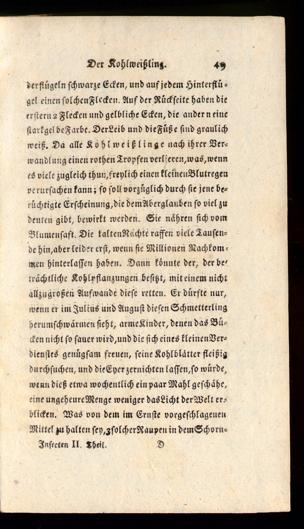 Der Kohlweißling. 49
derflügeln schwarze Ecken, und auf jedem Hinterflü-
gel einen solchen Flecken. Auf der Rückseite haben die
erstern 2 Flecken und gelbliche Ecken, die andern eine
starkgelbe Farbe. Der Leib und die Füße sind graulich
weiß. Da alle Kohlweißlinge nach ihrer Ver-
wandlung einen rothen Tropfen verlieren, was, wenn
es viele zugleich thun, freylich einen kleinen Blutregen
verursachen kann; so soll vorzüglich durch sie jene be-
rüchtigte Erscheinung, die dem Aberglauben so viel zu
deuten gibt, bewirkt werden. Sie nähren sich vom
Blumensaft. Die kalten Nächte raffen viele Tausen-
de hin, aber leider erst, wenn sie Millionen Nachkom-
men hinterlassen haben. Dann könnte der, der be-
trächtliche Kohlpflanzungen besitzt, mit einem nicht
allzugroßen Aufwande diese retten. Er dürfte nur,
wenn er im Julius und August diesen Schmetterling
herumschwärmen sieht, arme Kinder, denen das Bü-
cken nicht so sauer wird, und die sich eines kleinen Ver-
dienstes genügsam freuen, seine Kohlblätter fleißig
durchsuchen, und die Eyer zernichten lassen, so würde,
wenn dieß etwa wochentlich ein paar Mahl geschähe,
eine ungeheure Menge weniger das Licht der Welt er-
blicken. Was von dem im Ernste vorgeschlagenen
Mittel zu halten sey, 3 solcher Raupen in dem Schorn-
Insecten II. Theil. D